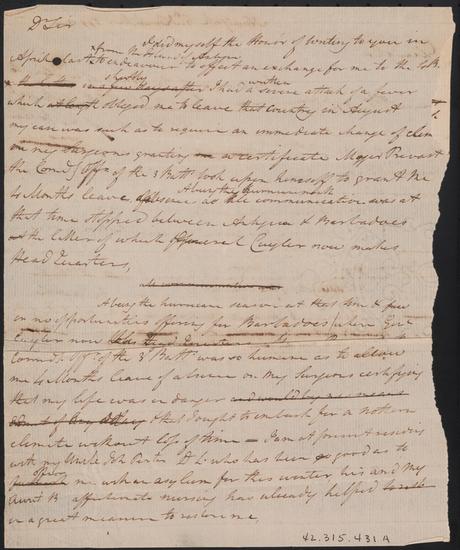 Dr Sir
I did myself the Honor of Writing to you in
April last from the Island of Antigua
to endeavour to effect an exchange for me to the 4 B.
shortly after I had a severe attack of a fever
which obliged me to leave that Country in August
my case was such as to require an immediate change of clim
on my Surgeons granting a certificate Major Prevost
the Comdg Offr of the 3 Battn took upon himself to grant me
4 Months leave absence as the communication was at
Abury the hurricane months
that time stopped between Antigua & Barbadoes
at the latter of which General Cuyler now makes
Head Quarters,
Abury the hurricane season at that time & few
or no opportunities offering for Barbadoes where Genl
Cuyler now
Commdg Offr of the 3 Battn was so humane as to allow
me 4 Months leave of absence on my Surgeons certifying
that my life was in danger and would by no means
& that I ought to embark for a nothern
climate without loss of time — I am at present residing
with my Uncle who has been so good as to
offer me with an asylum for this winter, his and my
Aunt B affectionate nursing has already helped
in a great measure to restore me,
42.315.431A